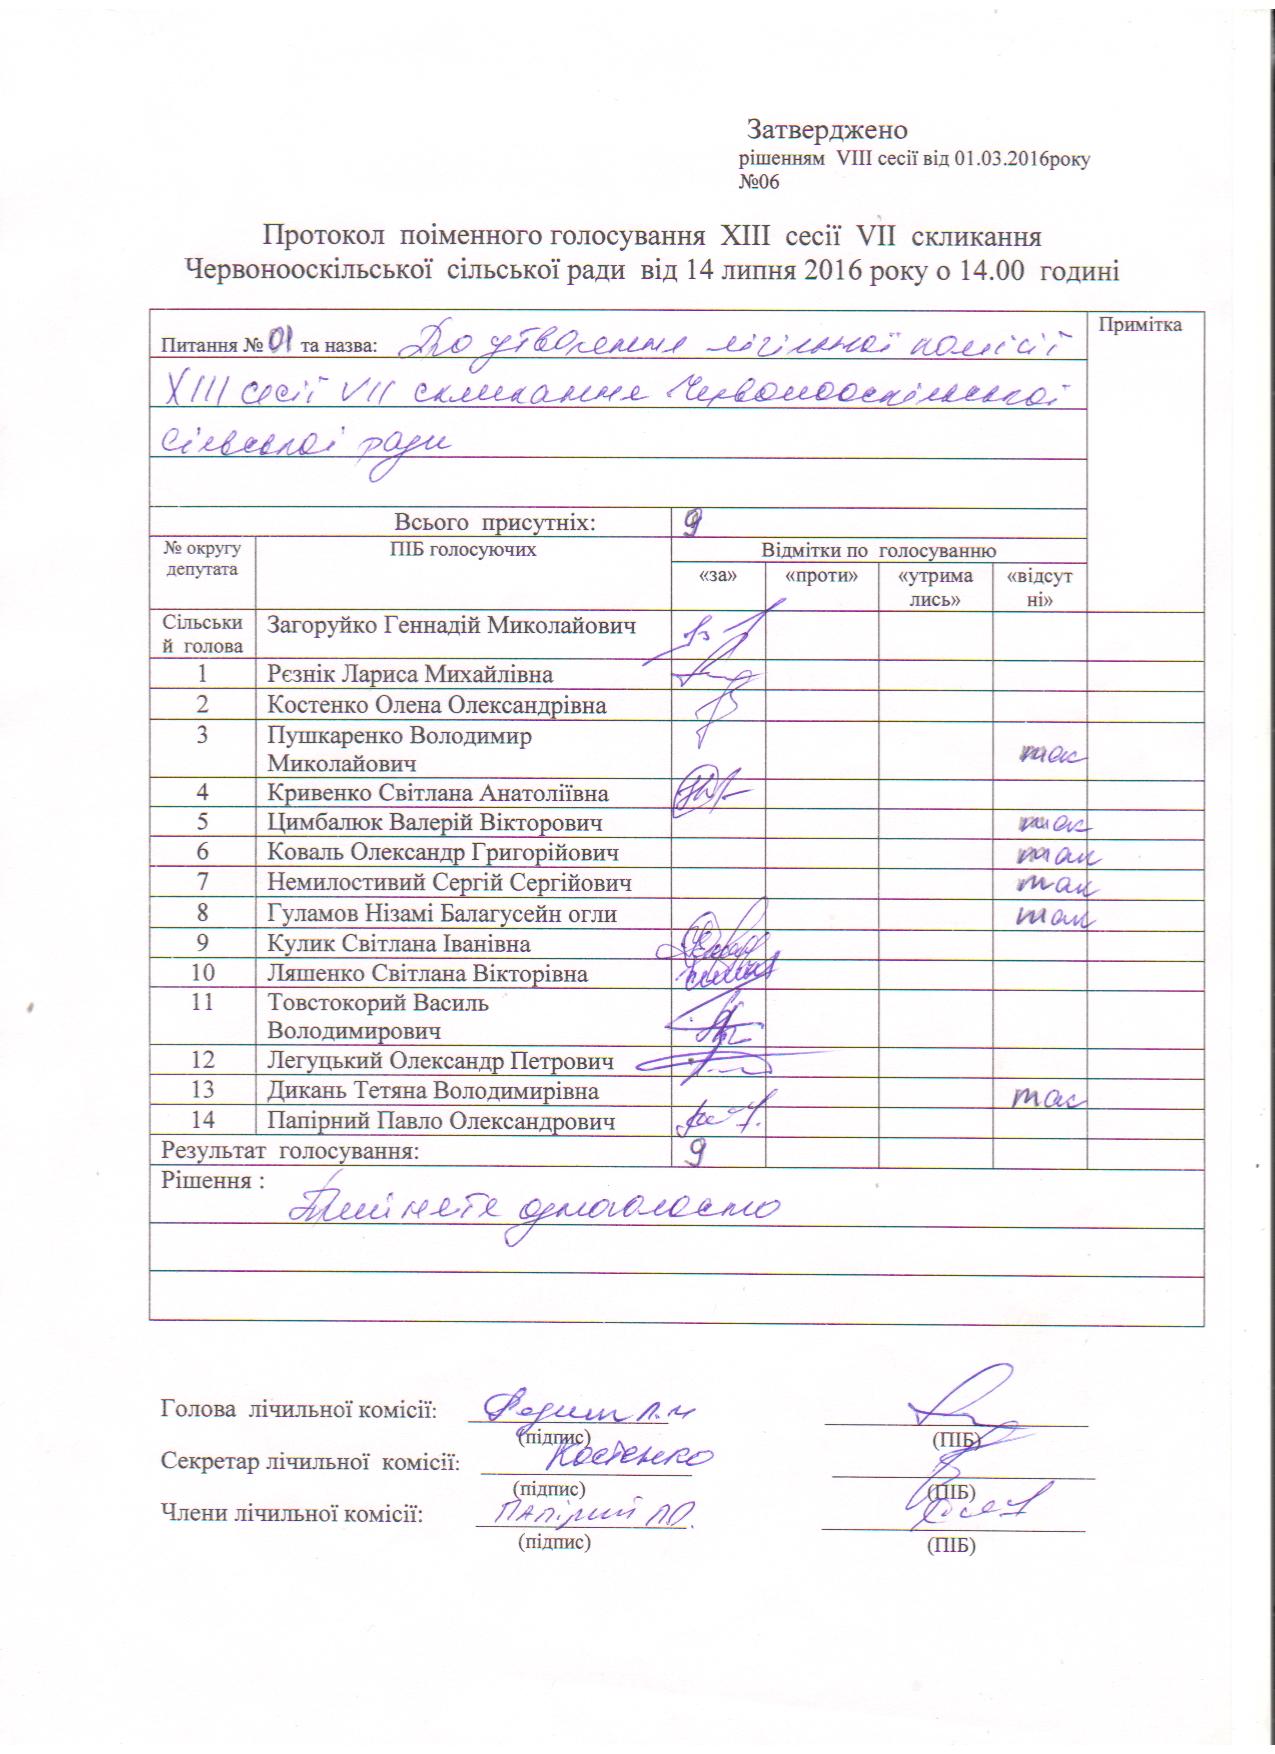 Затверджено
рішенням VIII сесії від 01.03.2016року
№06
Протокол поіменного голосування XIII сесії VII скликання
Червонооскільської сільської ради від 14 липня 2016 року о 14.00 годині
Питання № 01 та назва: До утворення лічільної комісії
Примітка
XIII сесії VII скликання Червонооскільської
сільської ради
Всього присутніх: 9
№ округу депутата
ПІБ голосуючих
Відмітки по голосуванню
«за» «проти» «утрима лись» «відсут ні»
Сільськи й голова Загоруйко Геннадій Миколайович
1 Рєзнік Лариса Михайлівна
2 Костенко Олена Олександрівна
3 Пушкаренко Володимир
Миколайович так
4 Кривенко Світлана Анатоліївна
5 Цимбалюк Валерій Вікторович так
6 Коваль Олександр Григорійович так
7 Немилостивий Сергій Сергійович так
8 Гуламов Нізамі Балагусейн огли так
9 Кулик Світлана Іванівна
10 Ляшенко Світлана Вікторівна
11 Товстокорий Василь
Володимирович
12 Легуцький Олександр Петрович
13 Дикань Тетяна Володимирівна так
14 Папірний Павло Олександрович
Результат голосування: 9
Рішення :
Прийнято одноголосно
Голова лічильної комісії:
(підпис) (ПІБ)
Секретар лічильної комісії: Костенко
(підпис) (ПІБ)
Члени лічильної комісії: Папірний П.О.
(підпис) (ПІБ)